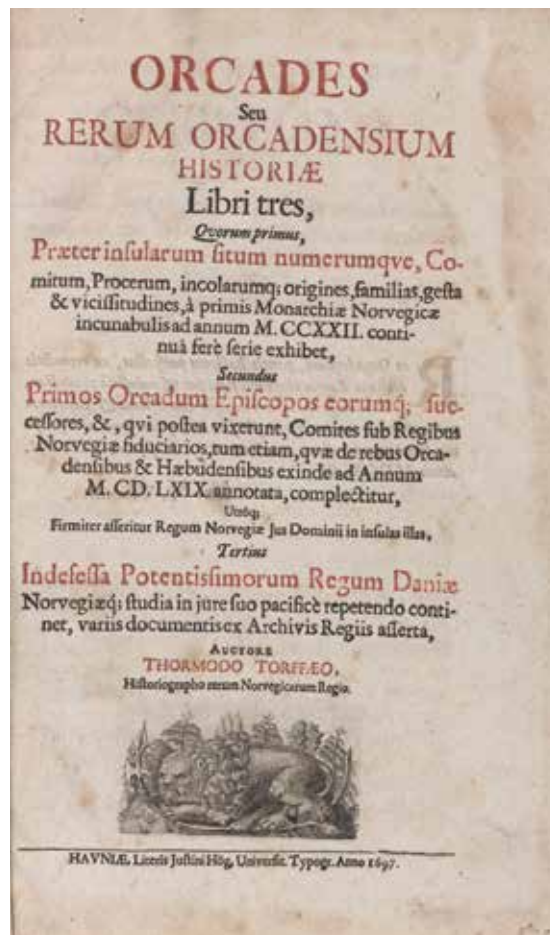 ORCADES
Seu
RERUM ORCADENSIUM
HISTORIÆ
Libri tres,
Qvorum primus,
Præter insularum situm numerumqve, Co-
mitum, Procerum, incolarumq; origines, familias, gesta
& vicissitudines, à primis Monarchiæ Norvegicæ
incunabulis ad annum M. CCXXII. conti-
nuâ ferè serie exhibet,
Secundus
Primos Orcadum Episcopos eorumq; suc-
cessores, &, qvi postea vixerunt, Comites sub Regibus
Norvegiæ fiduciarios, tum etiam, qvæ de rebus Orca-
densibus & Hæbudensibus exinde ad Annum
M. CD. LXIX. annotata, complectitur,
Utróq;
Firmiter asseritur Regum Norvegiæ Jus Dominii in insulas illas,
Tertius
Indefessa Potentissimorum Regum Daniæ
Norvegiæq; studia in jure suo pacificè repetendo conti-
net, variis documentis ex Archivis Regiis asserta,
AUCTORE
THORMODO TORFÆO,
Historiographo rerum Norvegicarum Regio.
HAVNIÆ, Literis Justini Hög, Universit. Typogr. Anno 1697.